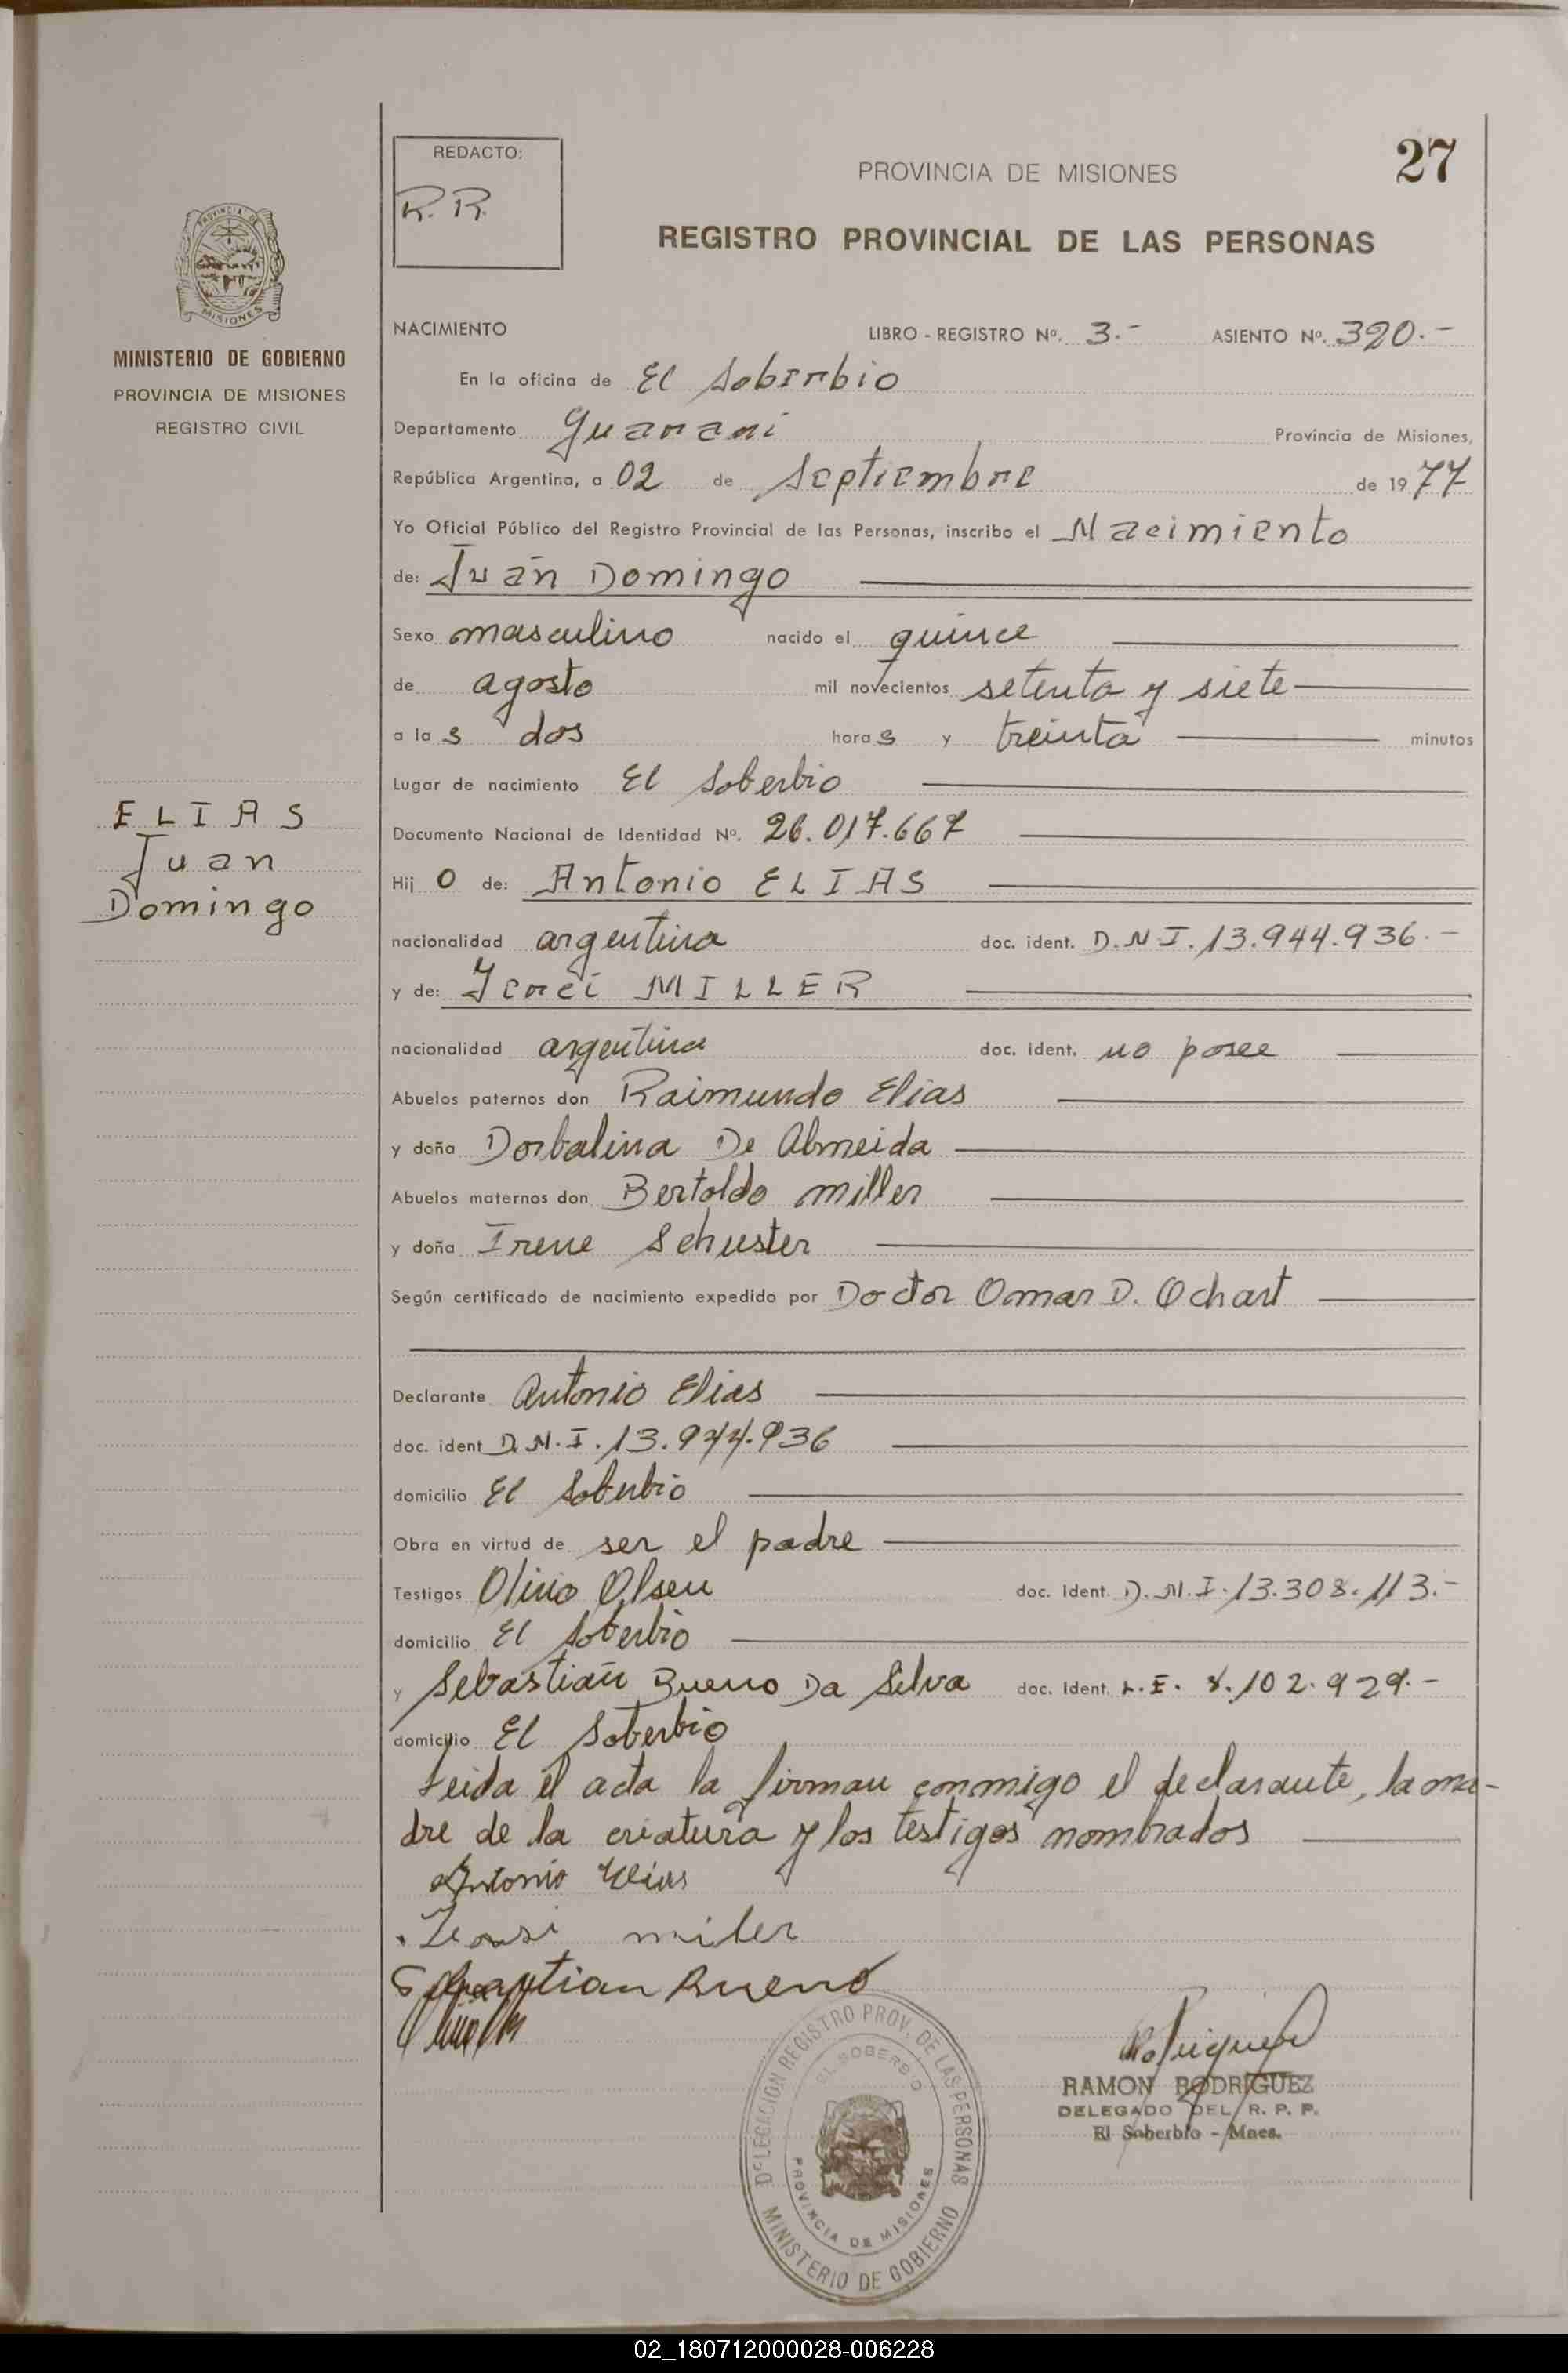 27
REDACTO:
R. R.
PROVINCIA DE MISIONES
REGISTRO PROVINCIAL DE LAS PERSONAS
PROVINCIA DE
MISIONES
MINISTERIO DE GOBIERNO
PROVINCIA DE MISIONES
REGISTRO CIVIL
NACIMIENTO LIBRO - REGISTRO Nº. 3.- ASIENTO Nº. 320.-
En la oficina de El Soberbio
Departamento Guarani Provincia de Misiones,
República Argentina, a 02 de Septiembre de 1977
Yo Oficial Público del Registro Provincial de las Personas, inscribo el Nacimiento
de: Juan Domingo
Sexo masculino nacido el quince
de agosto mil novecientos setenta y siete
a las dos horas y treinta minutos
Lugar de nacimiento El Soberbio
ELIAS
Juan
Domingo
Documento Nacional de Identidad Nº. 26.017.667
Hijo de: Antonio ELIAS
nacionalidad argentina doc. ident. D.N.I. 13.944.936.-
y de: MILLER
nacionalidad argentina doc. ident. no posee
Abuelos paternos don Raimundo Elias
y doña Dorbalina De Almeida
Abuelos maternos don Bertoldo Miller
y doña Irene Schuster
Según certificado de nacimiento expedido por Doctor Omar D. Ochart
Declarante Antonio Elias
doc. ident D.N.I. 13.944.936
domicilio El Soberbio
Obra en virtud de ser el padre
Testigos Olivio Olsen doc. Ident. D.N.I. 13.308.113.-
domicilio El Soberbio
y Sebastian Bueno Da Silva doc. Ident. L.E. 8.102.929.-
domicilio El Soberbio
Leida el acta la firman conmigo el declarante, la ma-
dre de la criatura y los testigos nombrados
Antonio Elias
miler
Sebastian Bueno
RAMON RODRIGUEZ
DELEGADO DEL R. P. P.
El Soberbio - Mnes.
DELEGACION REGISTRO PROV. DE LAS PERSONAS
EL SOBERBIO
PROVINCIA DE MISIONES
MINISTERIO DE GOBIERNO
02_180712000028-006228